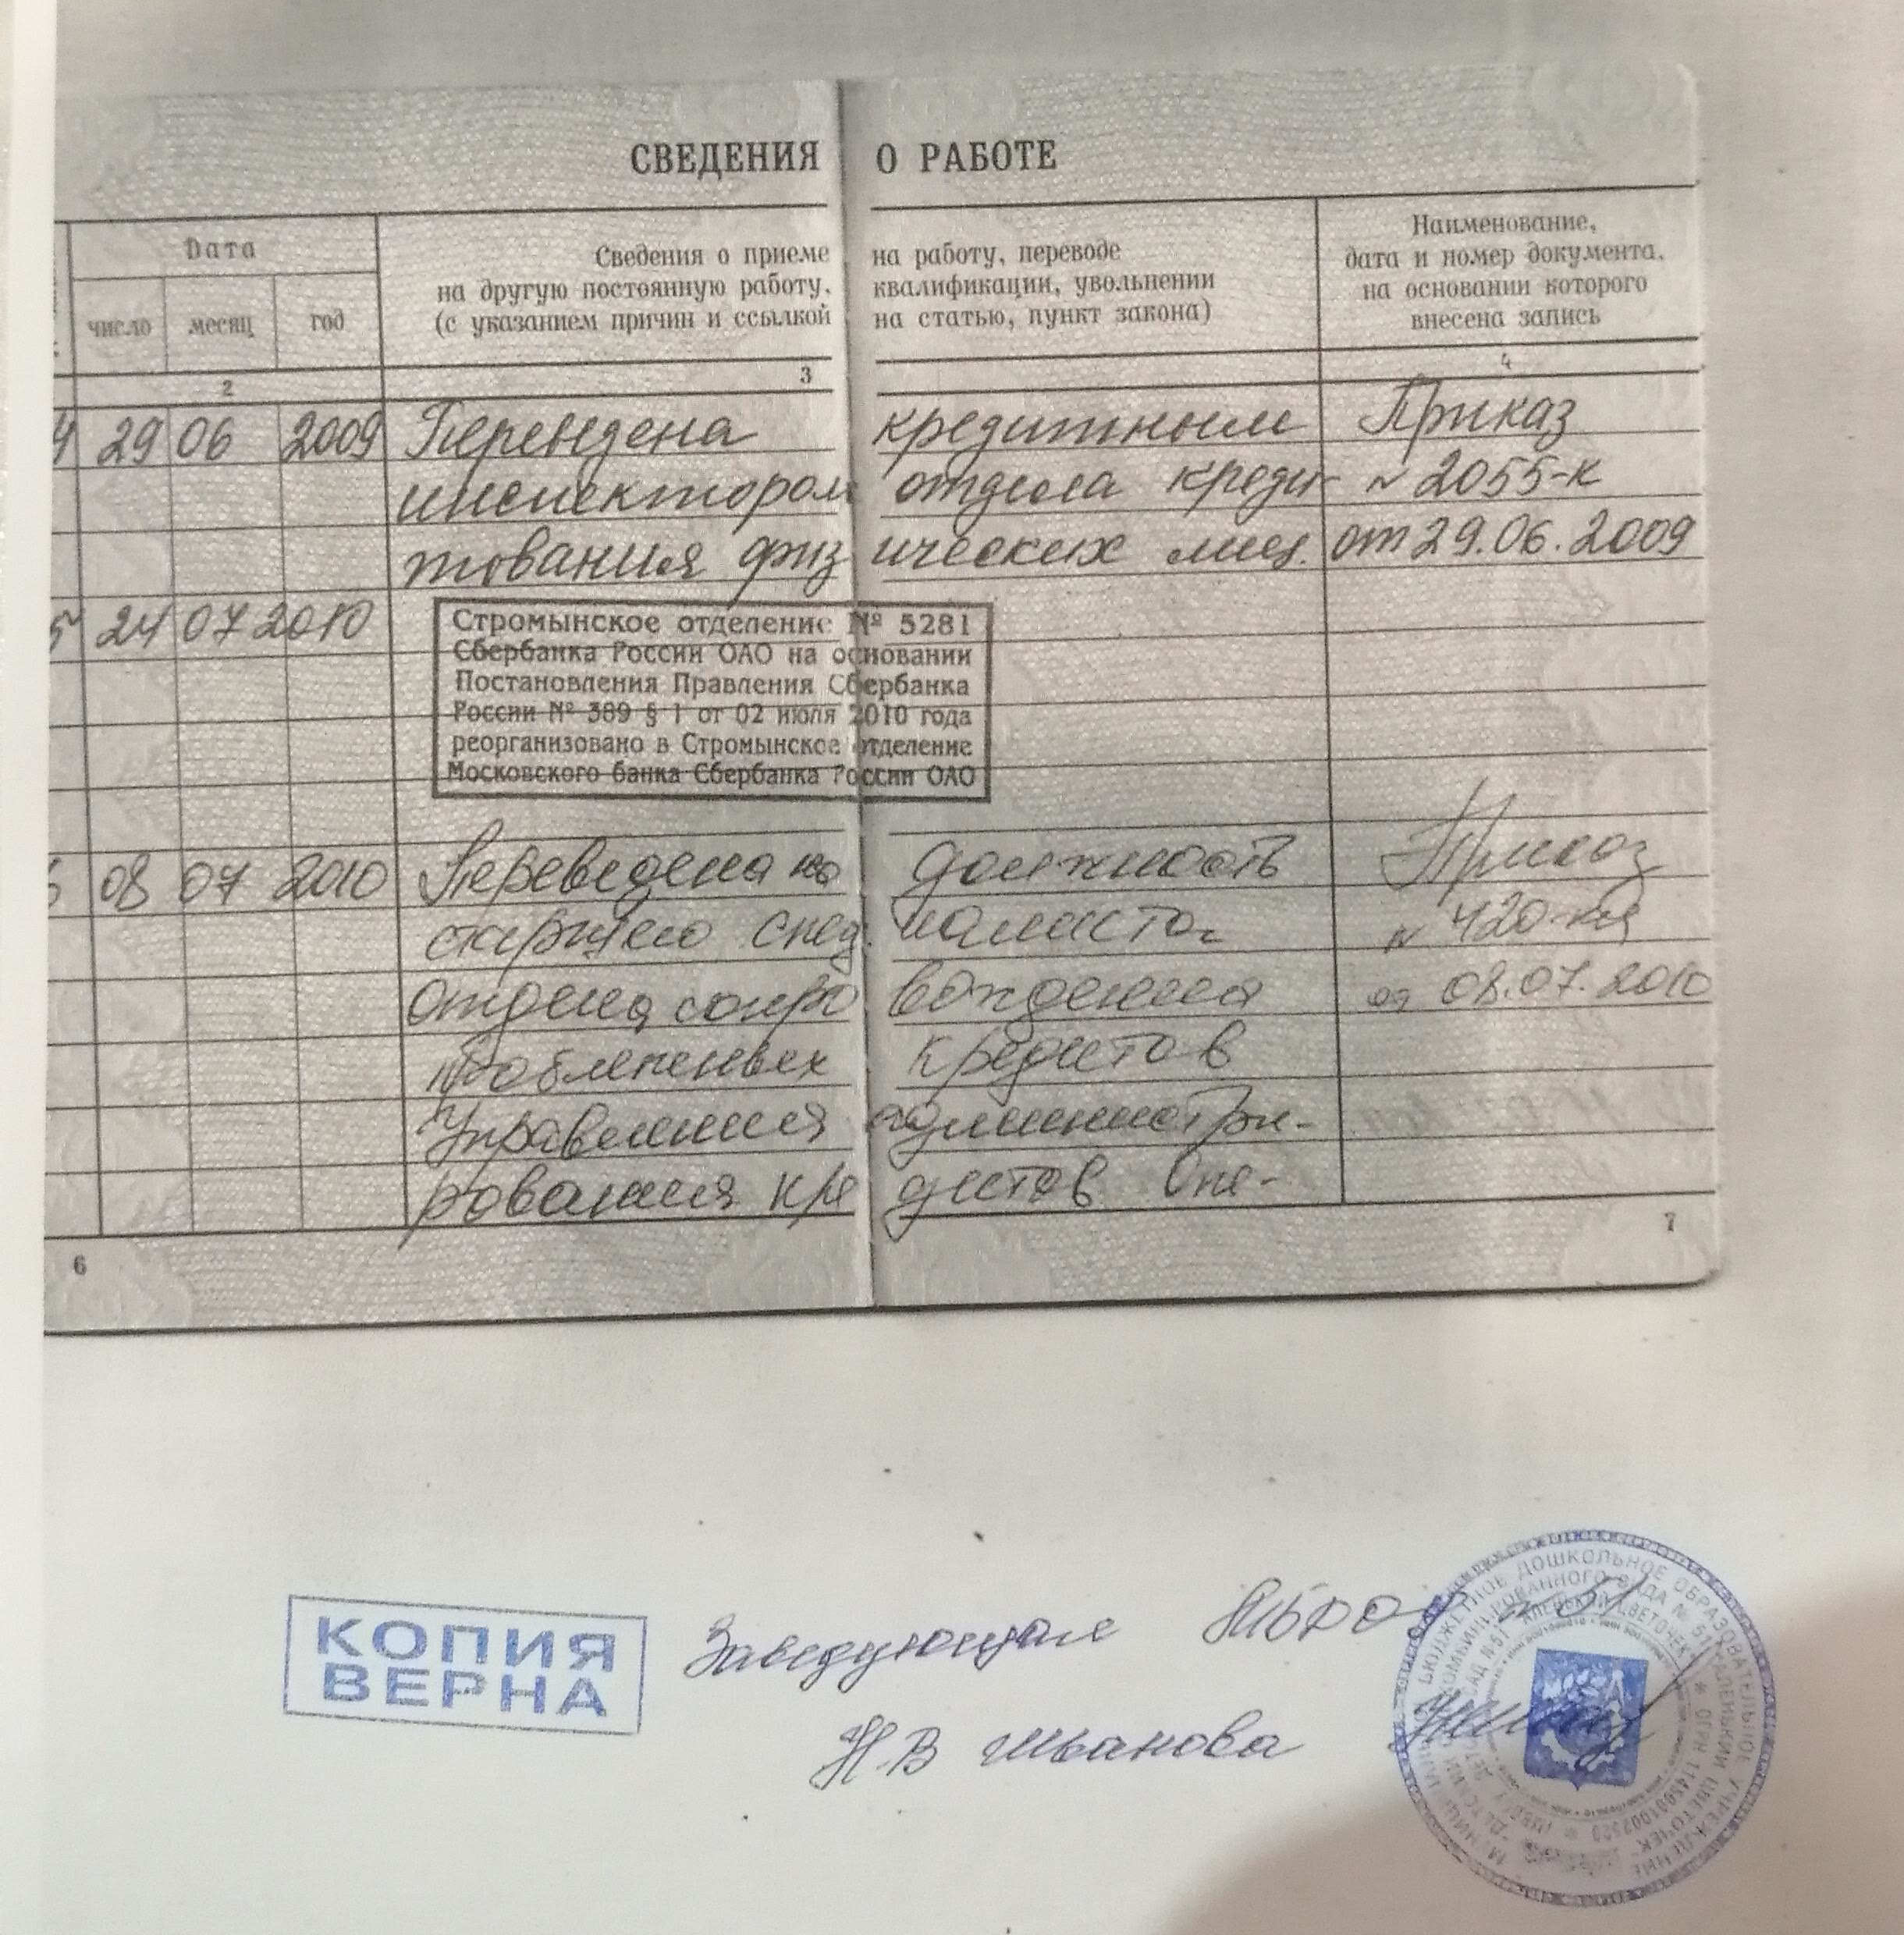 СВЕДЕНИЯ О РАБОТЕ
Дата
число месяц год
Сведения о приеме на работу, переводе
на другую постоянную работу, квалификации, увольнении
(с указанием причин и ссылкой на статью, пункт закона)
Наименование,
дата и номер документа,
на основании которого
внесена запись
2 3 4
4 29 06 2009 Переведена кредитным Приказ
инспектором отдела креди- № 2055-к
тования физических лиц. от 29.06.2009
5 24 07 2010
Стромынское отделение № 5281
Сбербанка России ОАО на основании
Постановления Правления Сбербанка
России № 389 § 1 от 02 июля 2010 года
реорганизовано в Стромынское отделение
Московского банка Сбербанка России ОАО
08 07 2010 Переведена на должность Приказ
старшего специалиста № 420-
отдела сопровождения от 08.07.2010
проблемных кредитов
Управления администри-
рования кредитов Опе-
6 7
КОПИЯ
ВЕРНА
Заведующая МБДОУ № 51
Н.В Иванова
БЮДЖЕТНОЕ ДОШКОЛЬНОЕ ОБРАЗОВАТЕЛЬНОЕ УЧРЕЖДЕНИЕ
КОМБИНИРОВАННОГО ВИДА № 51